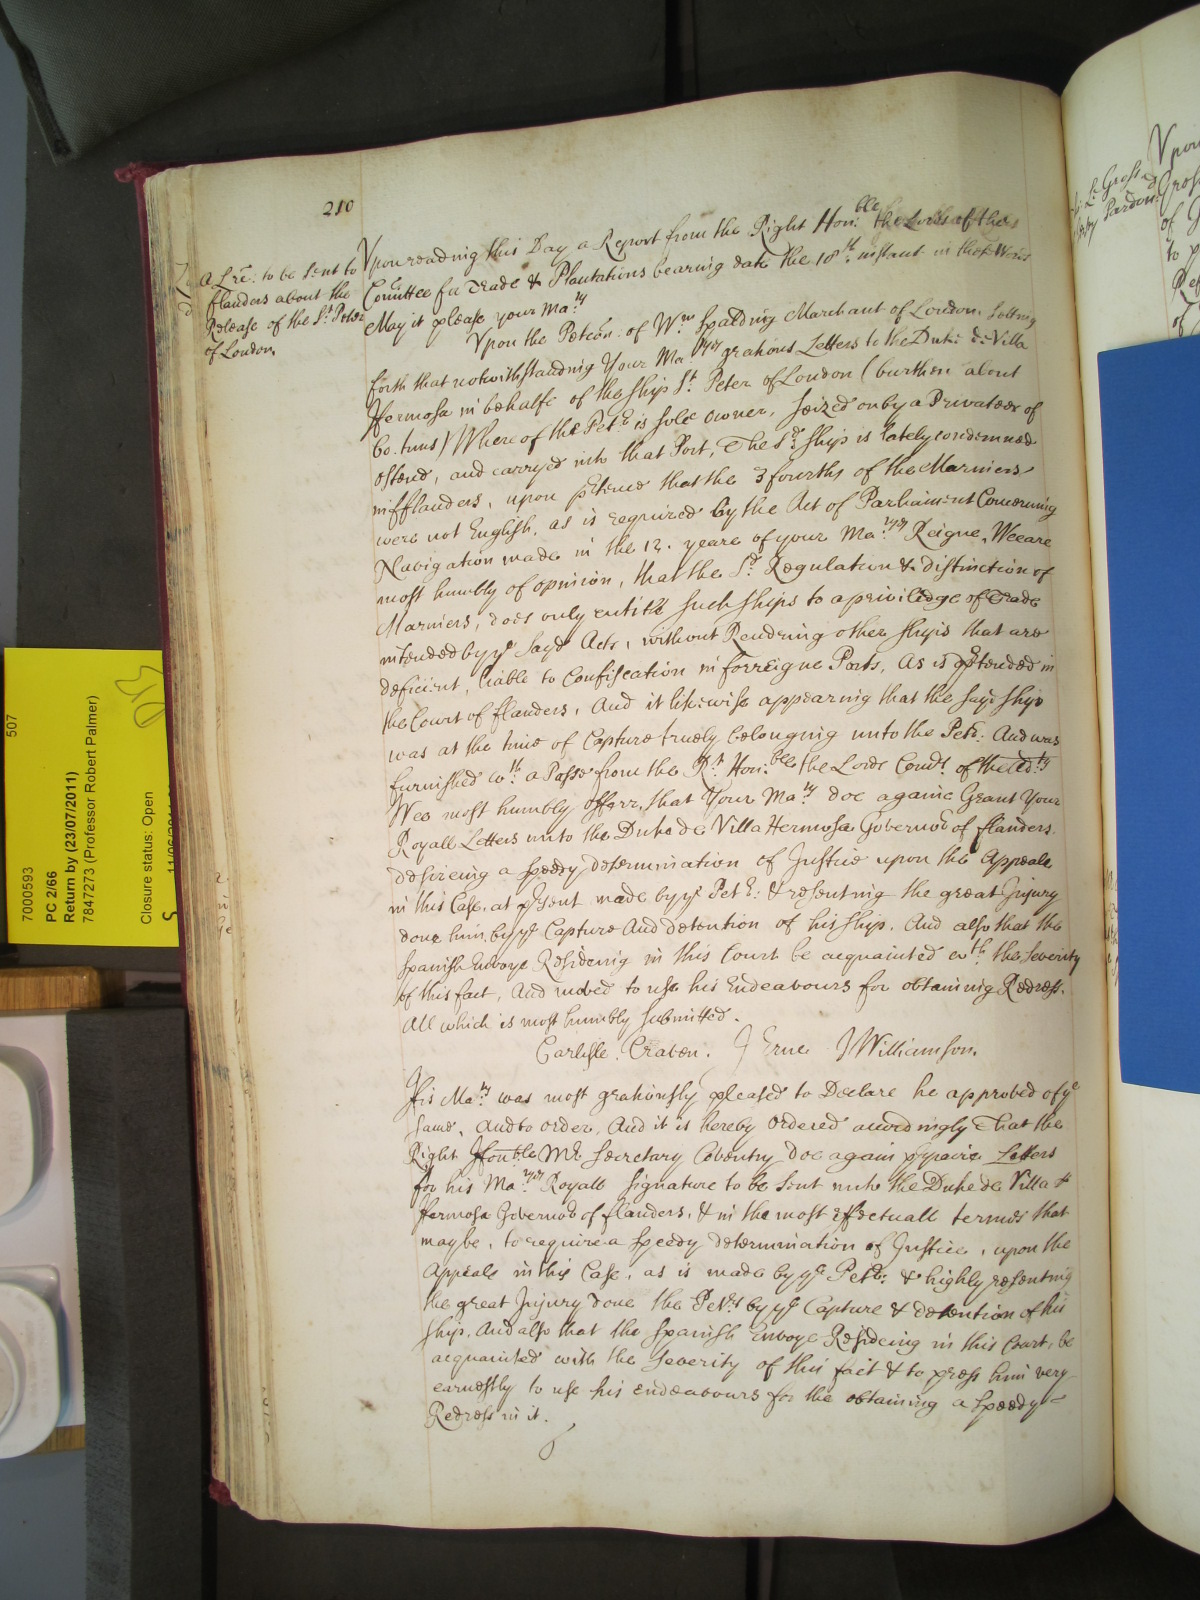 210
A Lre: to be sent to
flanders about the
Release of the St. Peter
of London.
Vpon reading this Day a Report from the Right Hon:ble the Lords of the
Comittee for Trade & Plantations bearing date the 18th. instant in these Words
May it please your Ma:ty
Vpon the Petcon. of Wm. Spalding Marchant of London. Setting
forth that notwithstanding Your Ma:tyes gratious Letters to the Duke de Villa
Hermosa in behalfe of the ship St. Peter of London (burthen about
60. tuns) Whereof the Petr. is sole owner, seized on by a Privateer of
Ostend, and carryed into that Port, The Sd. ship is lately condemned
in fflanders, upon ptence that the 3 fourths of the Marriners
were not English, as is required by the Act of Parliament Concerning
Navigation made in the 12. yeare of your Ma:tyes Reigne, Wee are
most humbly of opinion, that the Sd. Regulation & distinction of
Marriners, does only entitle such ships to a priviledge of Trade
intended by ye Sayd Acts, without Rendring other ships that are
deficient, liable to Confiscation in forreigne Ports, as is ptended in
the Court of flanders, And it likewise appearing that the sayd ship
was at the time of Capture truely belonging unto the Petr. And was
furnished wth. a Passe from the Rt. Hon:ble the Lords Comrs. of the Adty
Wee most humbly offerr, that Your Ma:ty doe againe Grant Your
Royall Letters unto the Duke de Villa Hermosa Governor of flanders.
desireing a speedy determination of Justice upon the Appeale
in this Case, at psent made by ye Petr: & resenting the great Injury
done him by ye Capture And detention of his ship. And also that the
Spanish Envoye Resideing in this Court be acquainted wth. the severity
of this fact, And moved to use his Endeavours for obtaining Redress.
All which is most humbly submitted.
Carlisle. Craven. J Erne J Williamson.
His Ma:ty was most gratiously pleased to Declare he approved of ye
same, and to order, And it is hereby Ordered accordingly That the
Right Honble Mr. Secretary Coventry doe again ppaire Letters
for his Ma:tyes Royall signature to be sent unto the Duke de Villa
Hermosa Governor of flanders, & in the most effectuall termes that
maybe, to require a speedy determination of Justice, upon the
Appeale in this Case, as is made by ye Petr: & highly resenting
the great Injury done the Petr. by ye Capture & detention of his
ship. And also that the Spanish Envoye Resideing in this Court, be
acquainted with the severity of this fact & to press him very
earnestly to use his endeavours for the obtaining a speedy
Redress in it.
7000593
507
PC 2/66
Return by (23/07/2011)
7847273 (Professor Robert Palmer)
Closure status: Open
Vpon
of
to
of